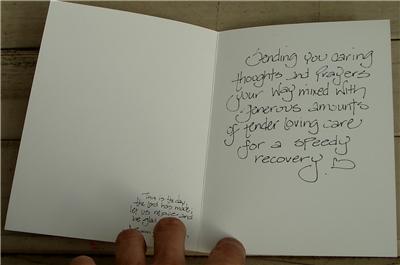 This is the day,
the lord has made;
let us rejoice and
be glad
Sending you caring
thoughts and Prayers
your way mixed with
generous amounts
of tender loving care
for a speedy
recovery.